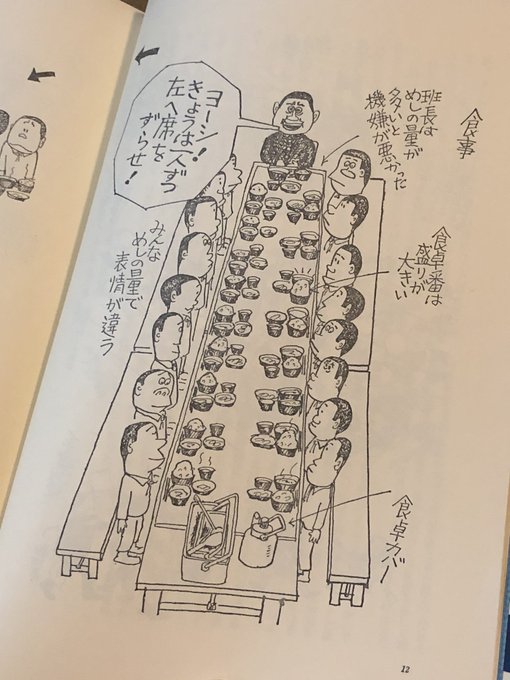 食事
班長は
めしの量が
多いと
機嫌が悪かった
ヨーシ!
きょうは一人ずつ
左へ席を
ずらせ!
食卓番は
盛りが
大きい
みんな
めしの量で
表情が違う
食卓カバー
12